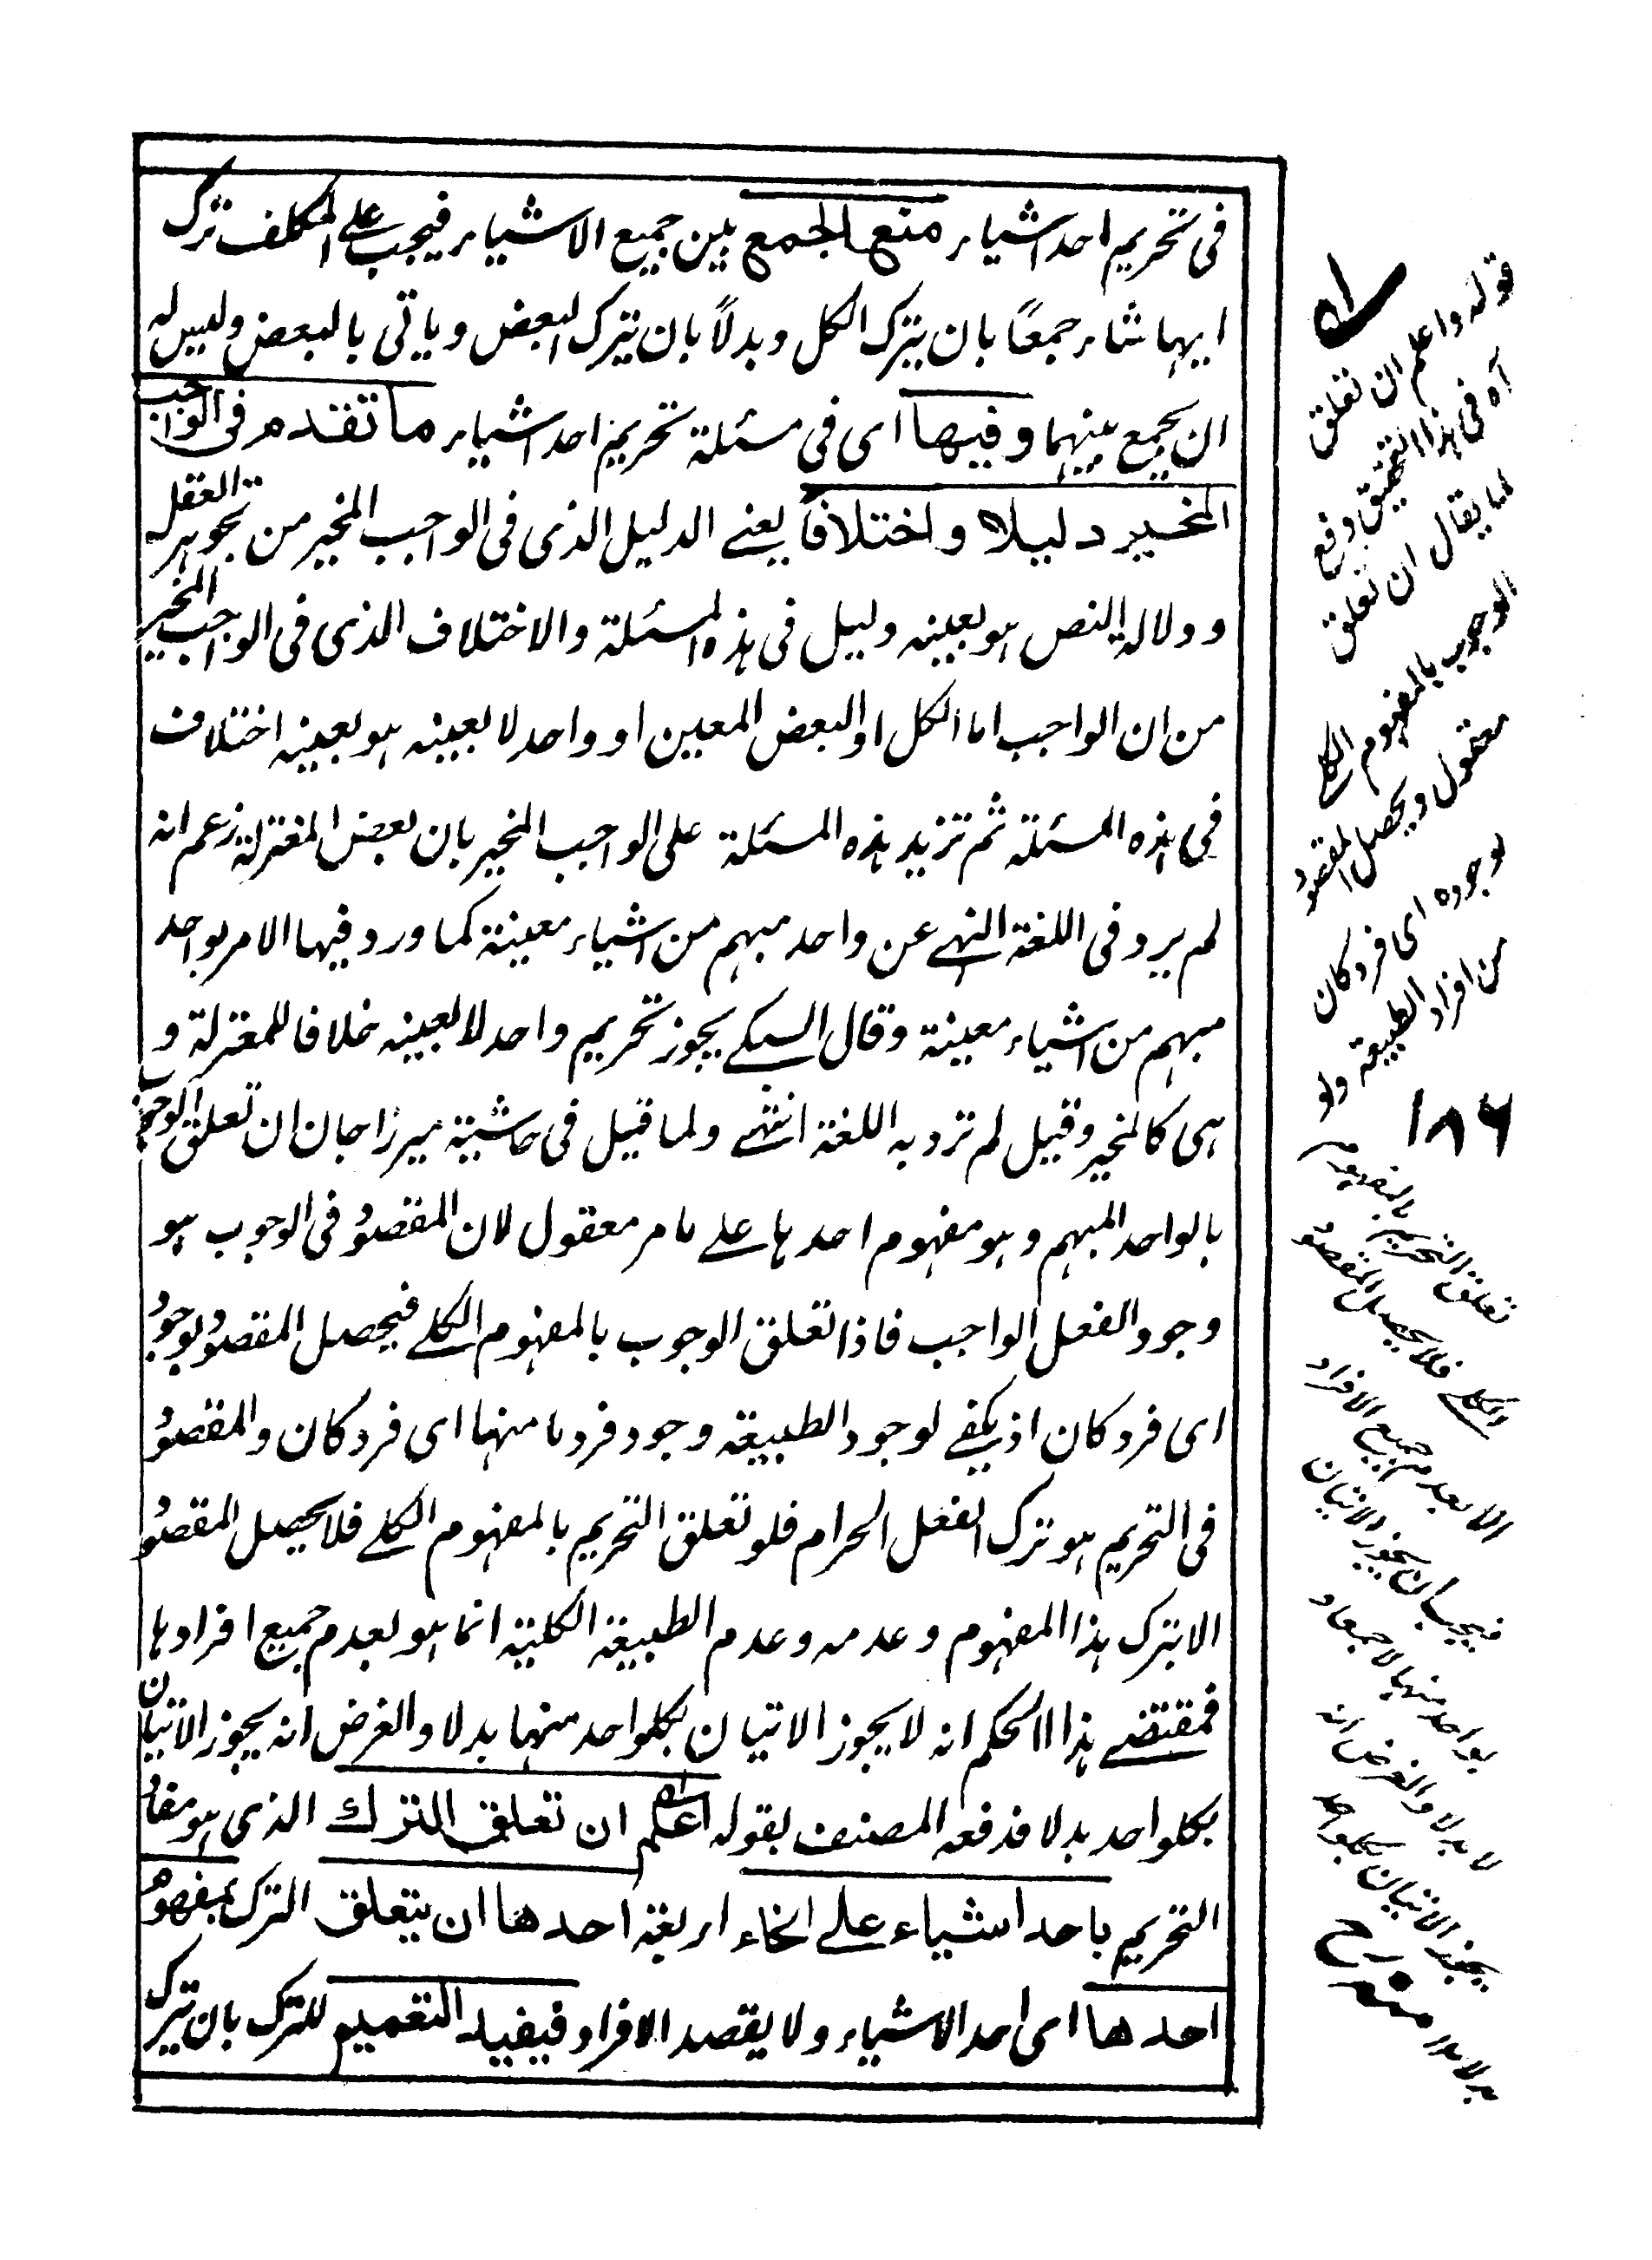 فى تحريم احد اشياء منعها لجمع بين جميع الاشياء فيجب على المكلف ترك
ايها شاء جمعًا بان يترك الكل و بدلاً بان يترك البعض و ياتى بالبعض وليس له
ان يجمع بينهما وفيها اى فى مسئلة تحريم احد اشياء ما تقدم فى الواجب
المخير دليلا و اختلافا يعنے الدليل الذى فى الواجب المخير من تجويز العقل
و دلالة النص هو بعينه دليل فى هذه المسئلة والاختلاف الذى فى الواجب المخير
من ان الواجب اما الكل او البعض المعين او واحد لا بعينه هو بعينه اختلاف
فى هذه المسئلة ثم تزيد هذه المسئلة على الواجب المخير بان بعض المعتزلة زعم انه
لم يرد فى اللغة النهے عن واحد مبهم من اشياء معينة كما ورد فيها الامر بواحد
مبهم من اشياء معينة و قال السبكے يجوز تحريم واحد لا بعينه خلافا للمعتزلة و
هى كالمخير و قيل لم ترد به اللغة انتهے و لما قيل فى حاشية ميرزاجان ان تعلق الوجوب
بالواحد المبهم و هو مفهوم احدها علے ما مر معقول لان المقصود فى الوجوب هو
وجود الفعل الواجب فاذا تعلق الوجوب بالمفهوم الكلے فيحصل المقصود بوجود
اى فرد كان اذ يكفے لوجود الطبيعة وجود فرد ما منها اى فرد كان والمقصود
فى التحريم هو ترك الفعل الحرام فلو تعلق التحريم بالمفهوم الكلے فلا يحصل المقصود
الا بترك هذا المفهوم و عدمه و عدم الطبيعة الكلية انما هو بعدم جميع افرادها
فمقتضے هذا الحكم انه لا يجوز الاتيان بكلواحد منها بدلا والغرض انه يجوز الاتيان
بكلواحد بدلا فدفعه المصنف بقوله اعلم ان تعلق الترك الذى هو مفاد
التحريم باحد اشياء علے انحاء اربعة احدها ان يتعلق الترك بمفهوم
احدها اى احد الاشياء ولا يقصد الافراد فيفيد التعميم للترك بان يترك
قوله واعلم ان تعلق
اه فى هذا التحقيق دفع
لما يقال ان تعلق
الوجوب بالمفهوم الكلے
معقول و يحصل المقصود
بوجوده اى فرد كان
من افراد الطبيعة ولو
١٨٦
تعلق التحريم بالمفهوم
الكلے فلا يحصل المقصود
الا بعدم جميع الافراد
فيجب ان يجوز الاتيان
بواحد منها لا جمعا و
لا بدلا والغرض انه
يجوز الاتيان بكلواحد
بدلا منه رح